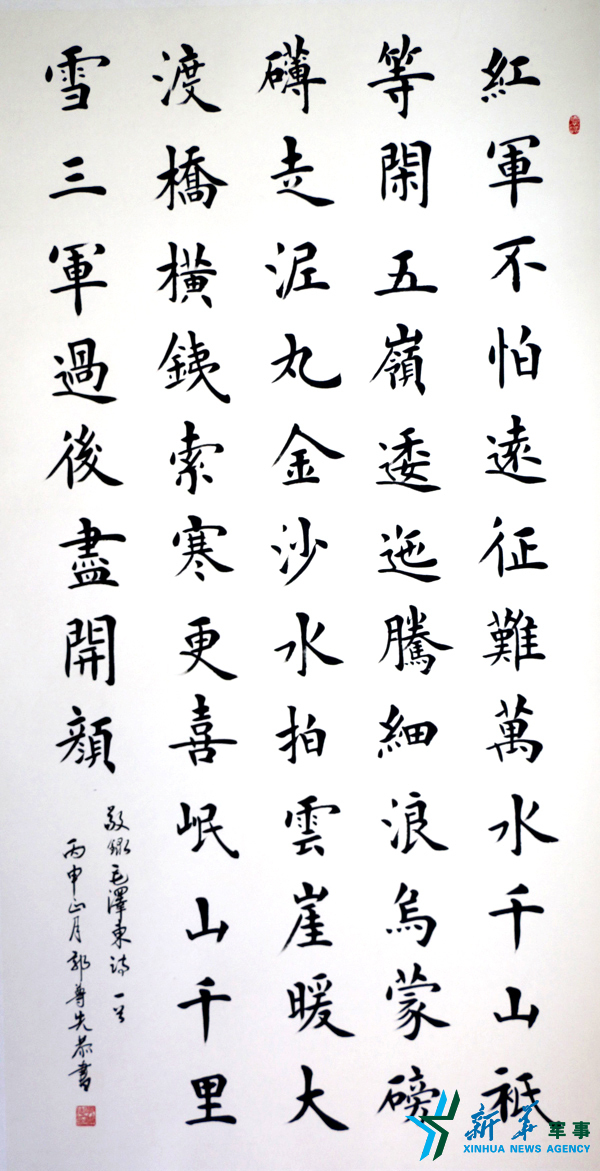 紅軍不怕遠征難萬水千山祇
等閑五嶺逶迤騰細浪烏蒙磅
礴走泥丸金沙水拍雲崖暖大
渡橋橫銕索寒更喜岷山千里
雪三軍過後盡開顏
敬錄毛澤東詩一首
丙申正月郭尊先恭書
新華军事
XINHUA NEWS AGENCY